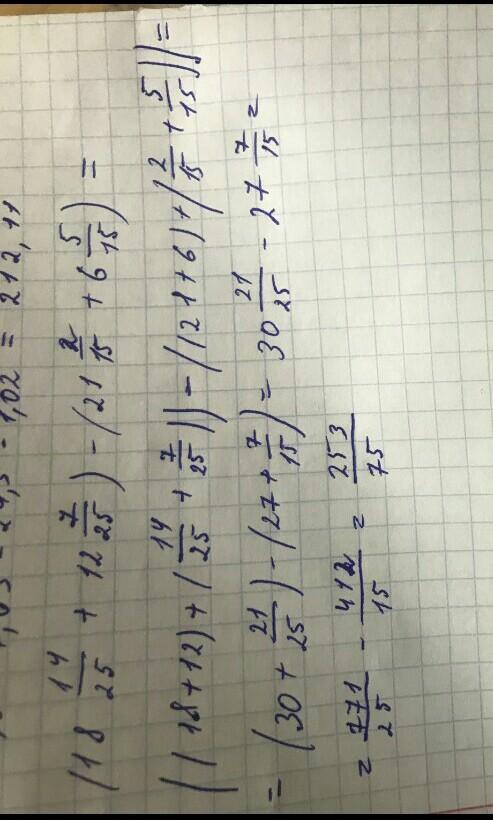 = 212,11
(18 14/25 + 12 7/25) - (21 2/15 + 6 5/15) =
((18+12)+(14/25 + 7/25)) - (121+6)+(2/15 + 5/15)) =
= (30 + 21/25) - (27 + 7/15) = 30 21/25 - 27 7/15 =
= 771/25 - 412/15 = 253/75